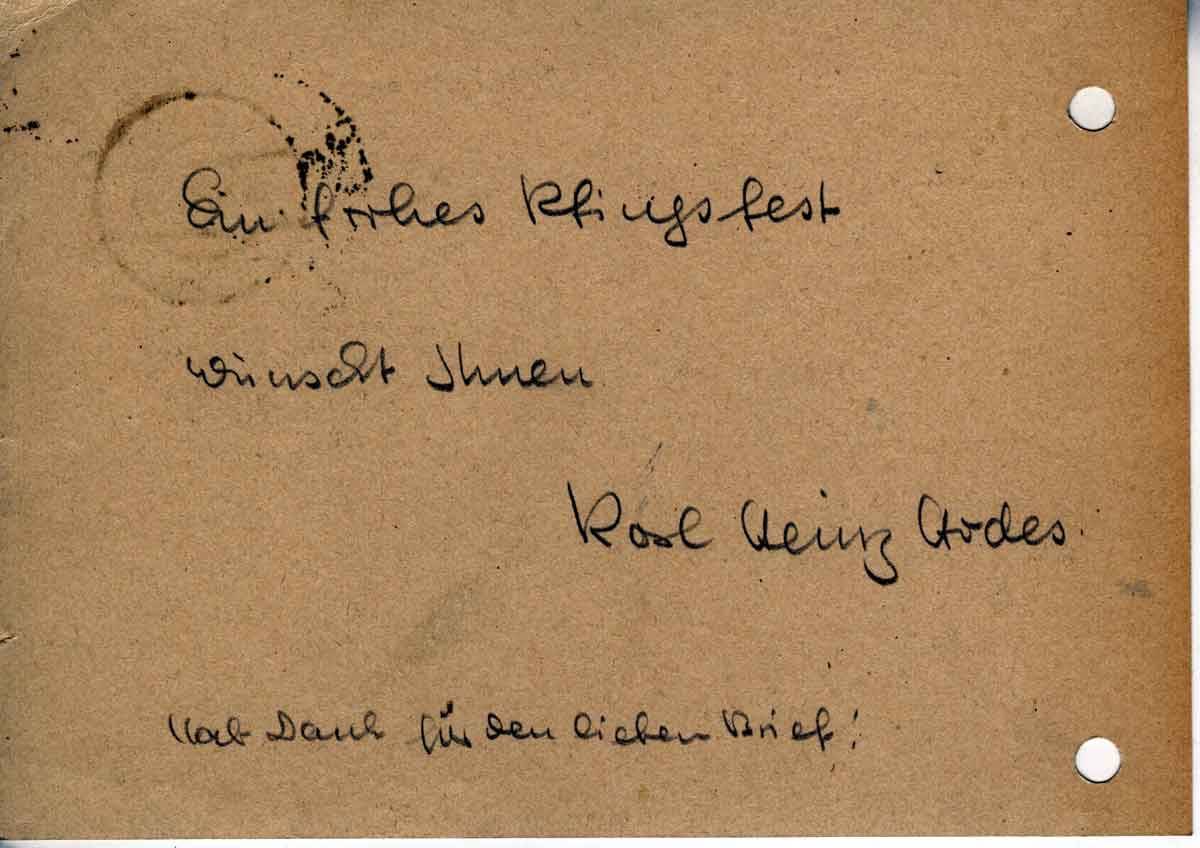 Ein frohes Pfingsfest
wünscht Ihnen
Karl Heinz Hodes.
Hab Dank für den lieben Brief!